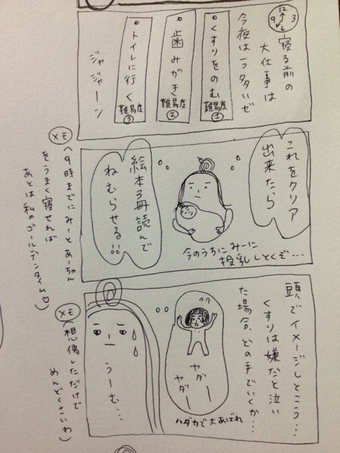 12
3
6
9
寝る前の
大仕事は
今夜は一つ多いぜ
•くすりをのむ
難易度
①
•歯みがき
難易度
②
•トイレに行く
難易度
③
ジャジャーン
これをクリア
出来たら
絵本3冊読んで
ねむらせる!!
今のうちにみーに
授乳しとくぞ…
メモ
(9時までにみーとあーちん
をうまく寝せれば
あとは私のゴールデンタイム♡)
頭でイメージしとこう…
くすりは嫌だと泣い
た場合、どの手でいくか…
ヤダー
ヤダー
ハダカで大あばれ
うーむ…
メモ
(想像しただけで
めんどくさいわ)